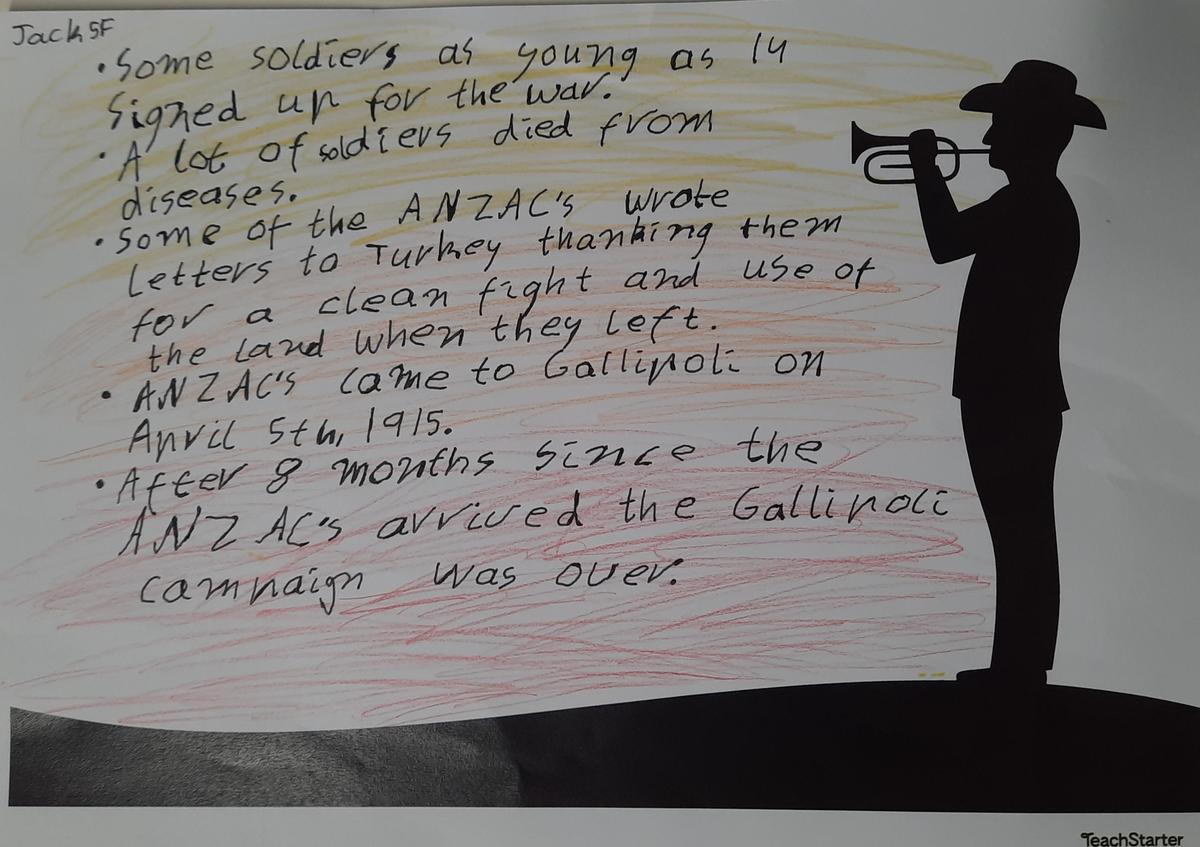 Jack 5F
• Some soldiers as young as 14
signed up for the war.
• A lot of soldiers died from
diseases.
• Some of the ANZAC's wrote
letters to Turkey thanking them
for a clean fight and use of
the land when they left.
• ANZAC's came to Gallipoli on
April 5th, 1915.
• After 8 months since the
ANZAC's arrived the Gallipoli
campaign was over.
TeachStarter